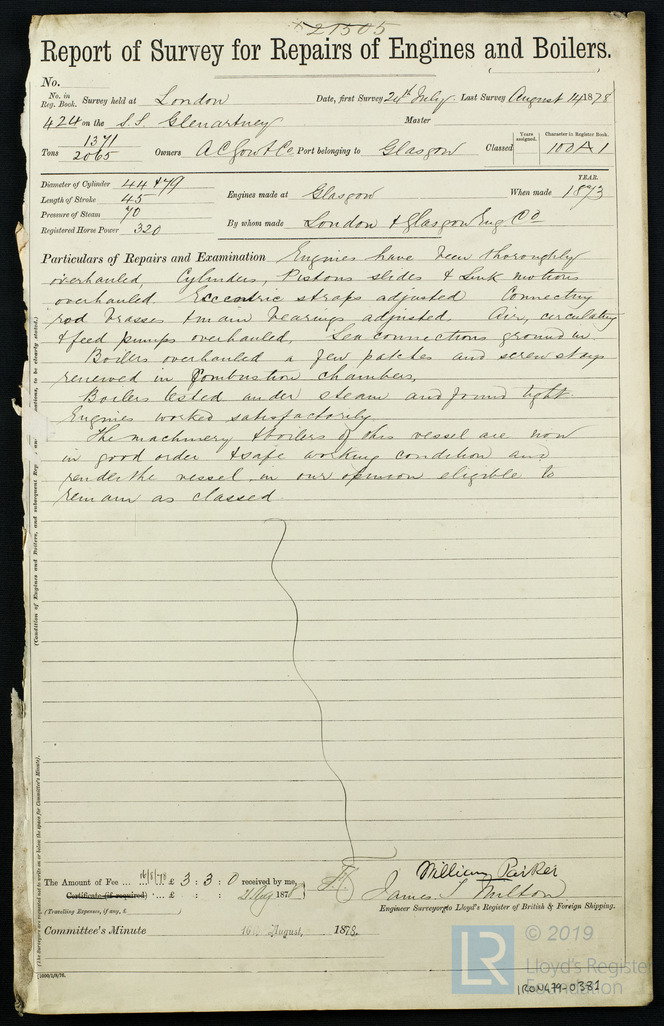 21505
Report of Survey for Repairs of Engines and Boilers.
No.
No. in Reg. Book. Survey held at London Date, first Survey 24th July Last Survey August 14 1878
424 on the S.S. Glenartney Master
Tons 1371 2065 Owners A C Gow & Co Port belonging to Glasgow Classed Years assigned. Character in Register Book. 100A1
Diameter of Cylinder 44 & 79
Length of Stroke 45
Pressure of Steam 70
Registered Horse Power 320
Engines made at Glasgow When made YEAR. 1873
By whom made London & Glasgow Eng Co
Particulars of Repairs and Examination Engines have been thoroughly
overhauled, Cylinders, Pistons slides & link motions
overhauled Eccentric straps adjusted Connecting
rod brasses & main bearings adjusted Air, circulating
& feed pumps overhauled, Sea connections ground in
Boilers overhauled a few patches and screw stays
renewed in Combustion chambers,
Boilers tested under steam and found tight
Engines worked satisfactorily
The machinery & boilers of this vessel are now
in good order & safe working condition and
render the vessel in our opinion eligible to
remain as classed
The Amount of Fee ... 16/8/78 £ 3 : 3 : 0 received by me,
Certificate (if required) ... £ : : 187
(Travelling Expenses, if any, £ )
William Parker
James T Milton
Engineer Surveyors to Lloyd's Register of British & Foreign Shipping.
Committee's Minute 16th August, 1878.
(Condition of Engines and Boilers, and subsequent
nations, to be clearly stated.)
(The Surveyors are requested not to write on or below the space for Committee's Minute.)
LR © 2019
Lloyd's Register
Foundation
IRON479-0381